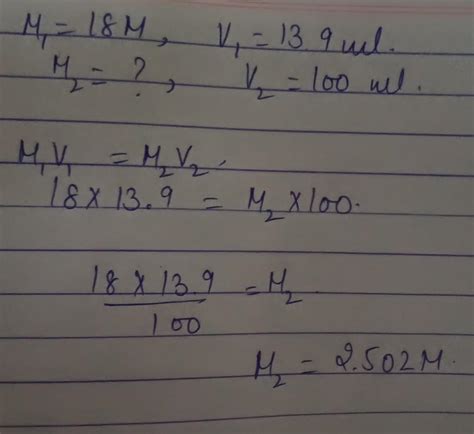 M₁ = 18M, V₁ = 13.9 ml.
M₂ = ?, V₂ = 100 ml.
M₁V₁ = M₂V₂.
18 × 13.9 = M₂ × 100.
18 × 13.9 / 100 = M₂
M₂ = 2.502 M.